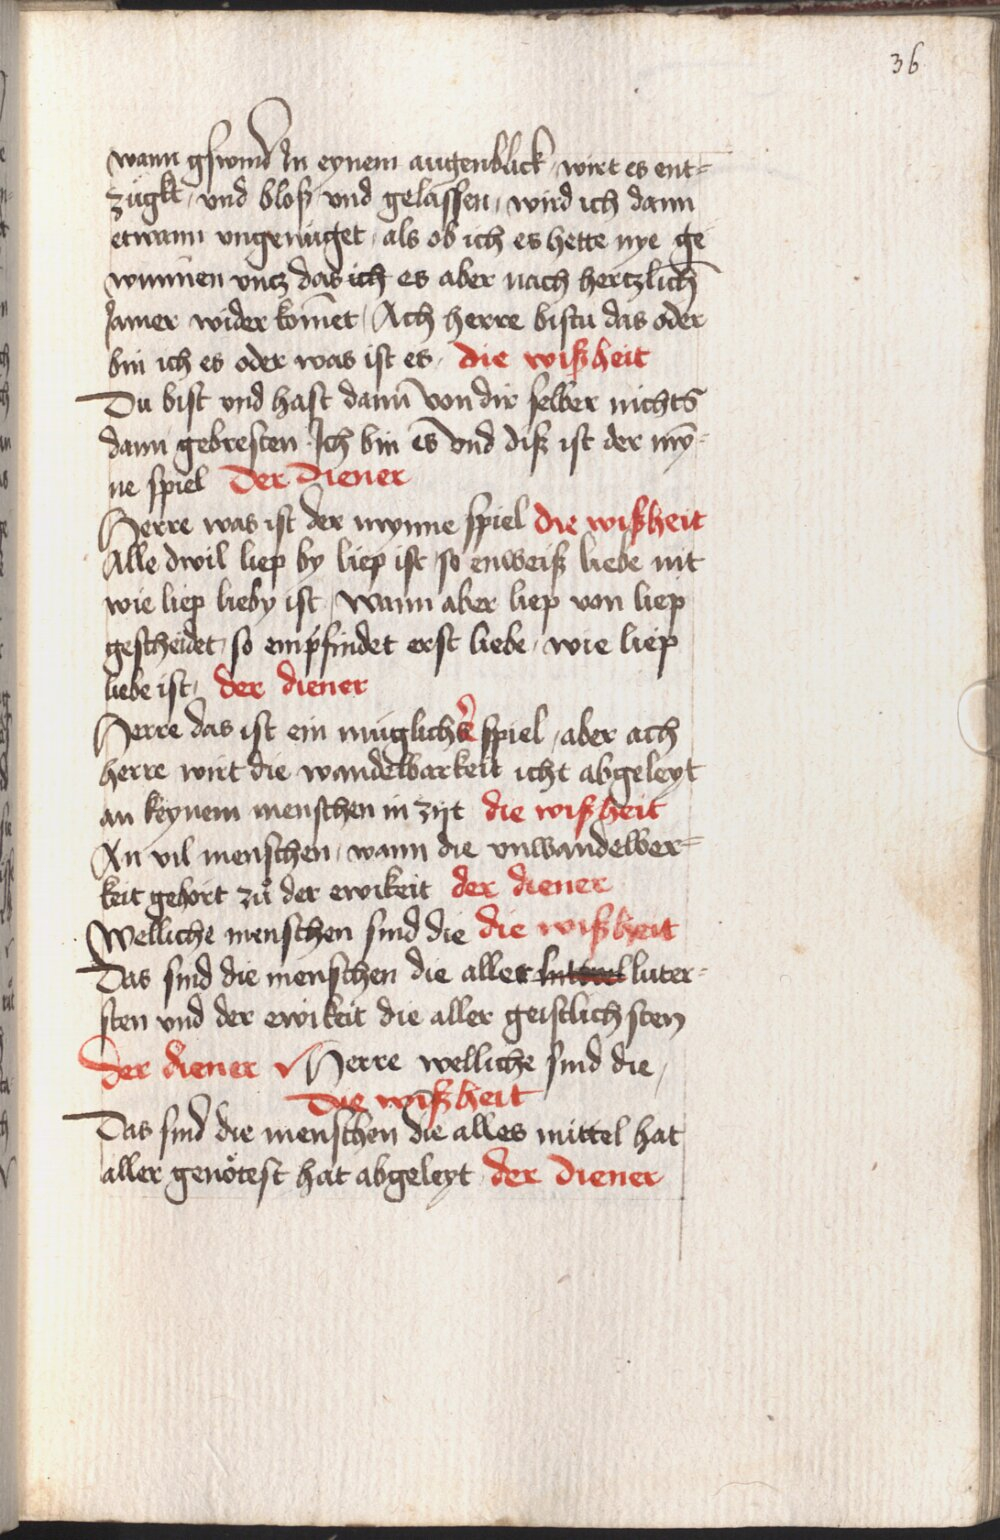 36
wann gswind In eynem augenblick / wirt es ent=
zügkt / und bloß / und gelassen / wird ich dann
etwann ungenüget / als ob ich es hette nye ge
wunnen untz das ich es aber nach hertzlich̄
Jamer wider kom̄et / Ach herre bistu das oder
bin ich es oder was ist es / die wißheit
Du bist und hast dann̄ von dir selber nichts
dann gebresten Ich bin es und diß ist der my̅=
ne spiel Der Diener
Herre was ist der mynne spiel die wißheit
Alle dwil liep by liep ist / so enweiß liebe nit
wie liep lieby ist / Wann aber liep von liep
gescheidet / so empfindet erst liebe / wie liep
liebe ist / der diener
Herre das ist ein müglichs spiel / aber ach
herre wirt die wandelbarkeit icht abgeleyt
an keynem menschen in zijt die wißheit
An vil menschen / wann die unwandelber=
keit gehört zů der ewikeit der diener
Welliche menschen sind die die wißheit
Das sind die menschen die aller luter=
sten und der ewikeit die aller geistlichsten
Der diener Herre welliche sind die /
Die wißheit
Das sind die menschen die alles mittel hat
aller genötest hat abgeleyt der Diener